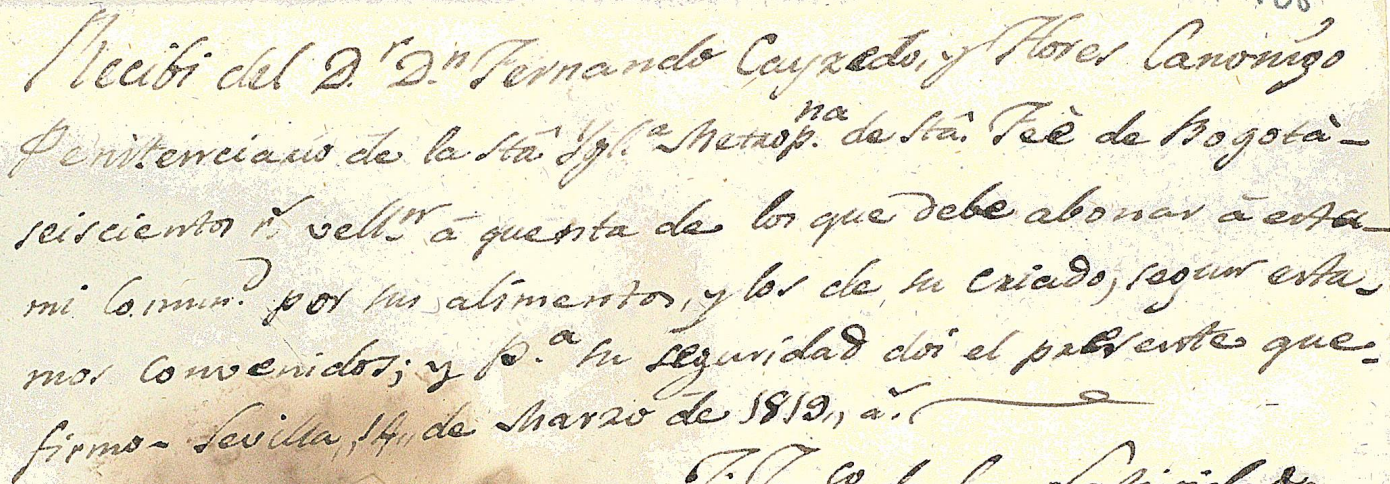 Recibi del D.r D.n Fernando Cayzedo, y Flores Canonigo
Penitenciario de la Stâ Ygl.a Metrop.na de Stâ. Feè de Bogotà-
seiscientos r.s vell.n à quenta de los que debe abonar à esta-
mi Comun.d por sus alimentos, y los de su criado, segun esta-
mos convenidos; y p.a su seguridad doi el presente que-
firmo- Sevilla,, 14,, de Marzo de 1819,, a.s